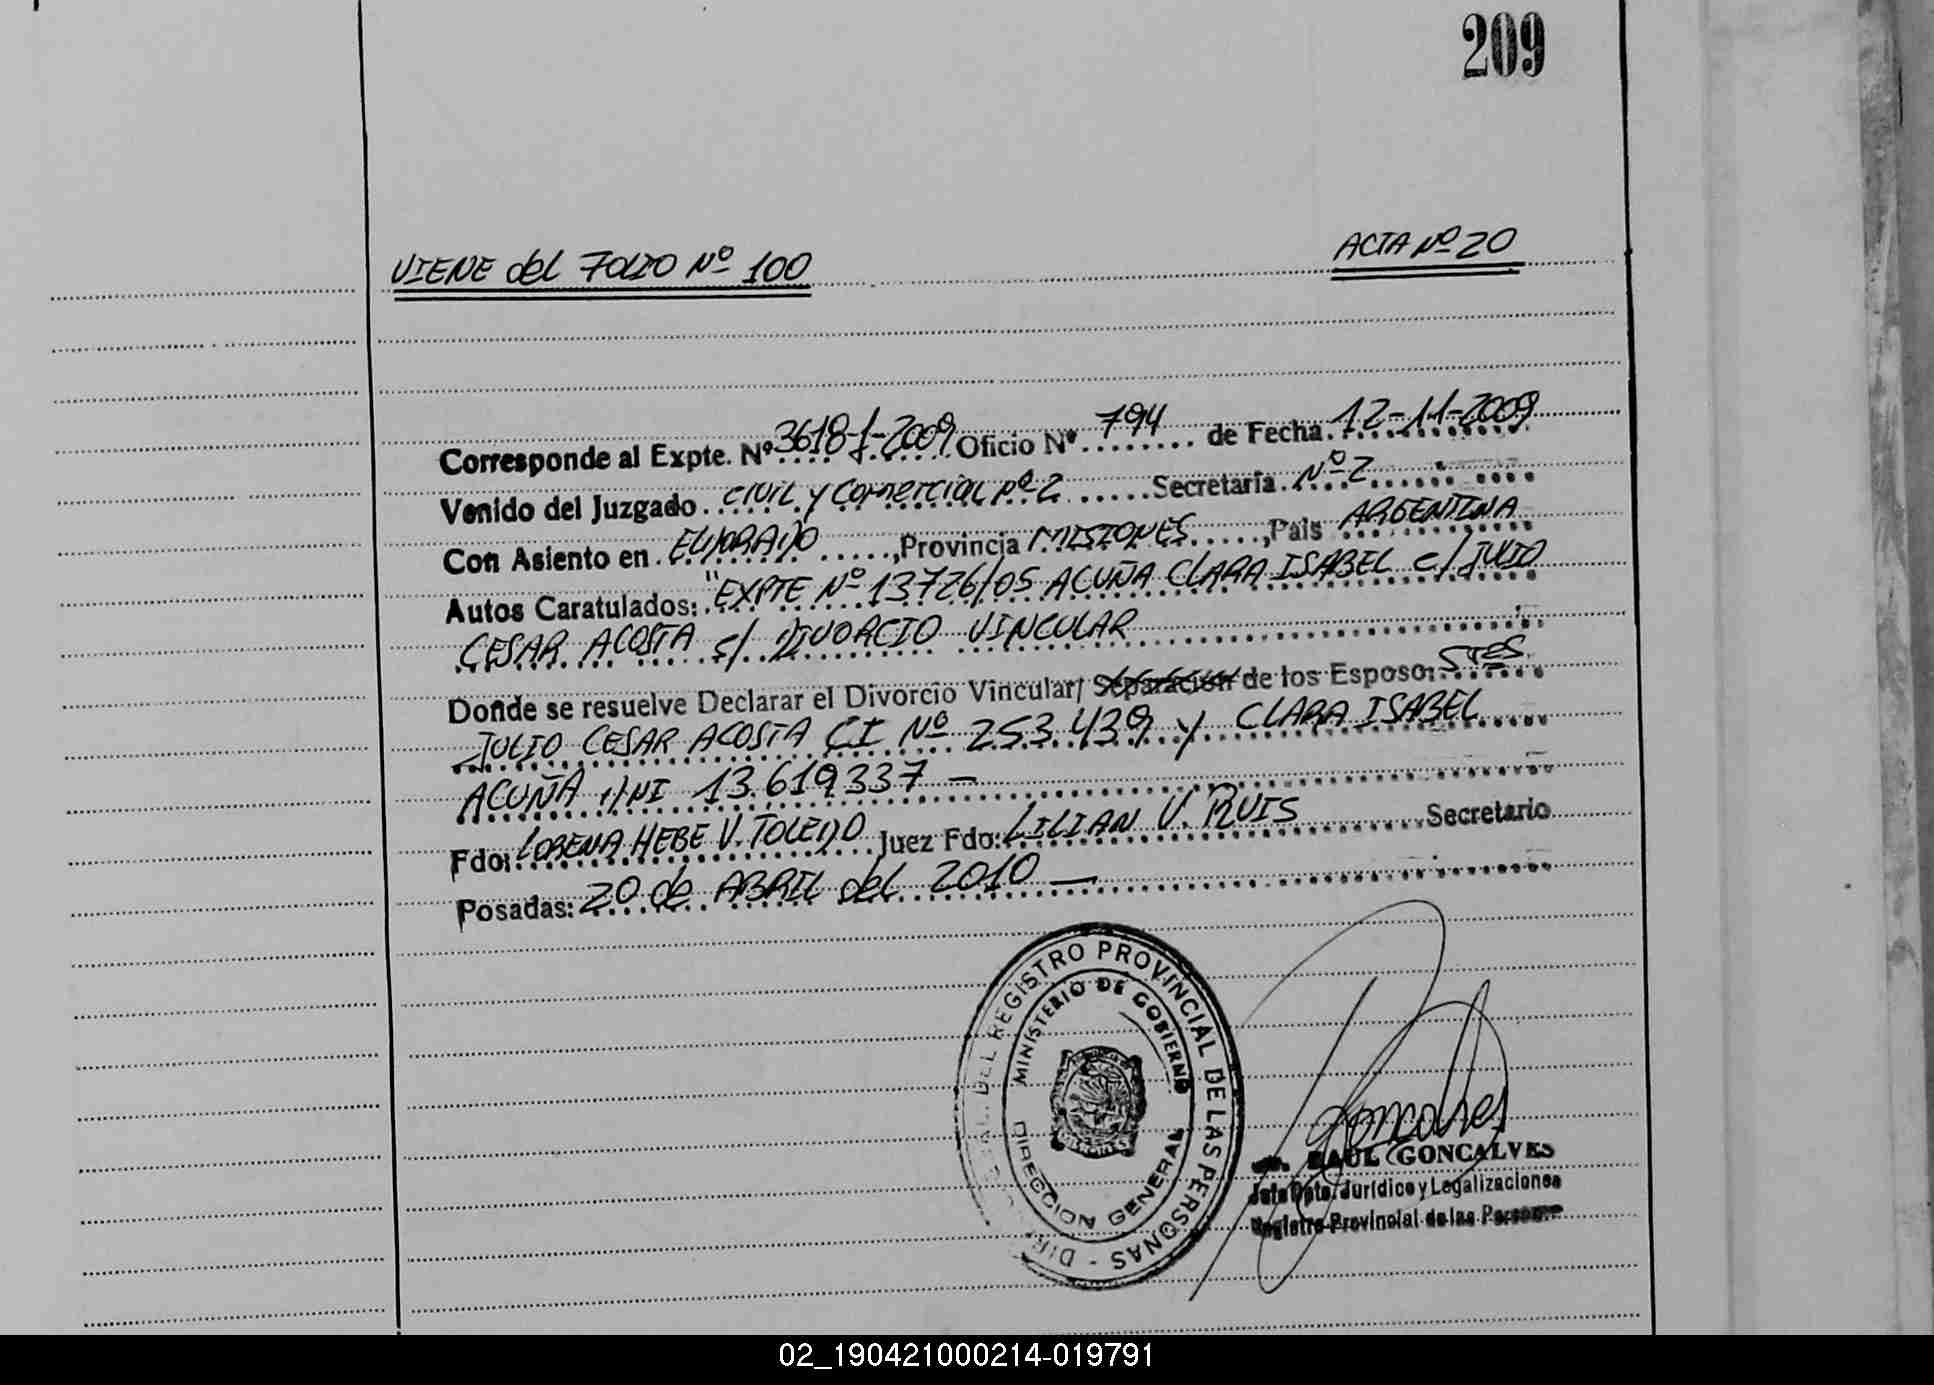 209
VIENE del FOLIO Nº 100
ACTA Nº 20
Corresponde al Expte. Nº 3618-J-2009 Oficio Nº 794 de Fecha 12-11-2009
Venido del Juzgado Civil y Comercial Nº 2 Secretaria Nº 2
Con Asiento en ELDORADO, Provincia MISIONES, Pais ARGENTINA
Autos Caratulados: "EXPTE Nº 13726/05 ACUÑA CLARA ISABEL c/ JULIO
CESAR ACOSTA s/ DIVORCIO VINCULAR
Donde se resuelve Declarar el Divorcio Vincular/ Separación de los Esposos Stes.
JULIO CESAR ACOSTA CI Nº 253.439 y CLARA ISABEL
ACUÑA DNI 13.619.337 —
Fdo: LORENA HEBE V. TOLEDO Juez Fdo: LILIAN V. RUIS Secretario
Posadas: 20 de ABRIL del 2010 —
DEL REGISTRO PROVINCIAL DE LAS PERSONAS -
MINISTERIO DE GOBIERNO
DIRECCION GENERAL
Goncalves
RAUL GONCALVES
Jefe Dpto. Jurídico y Legalizaciones
Registro Provincial de las Personas
02_190421000214-019791